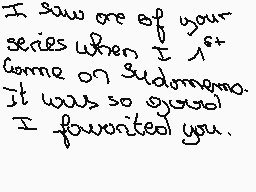 I saw one of your
series when I 1st
Came on Sudomemo.
It was so good
I favorited you.